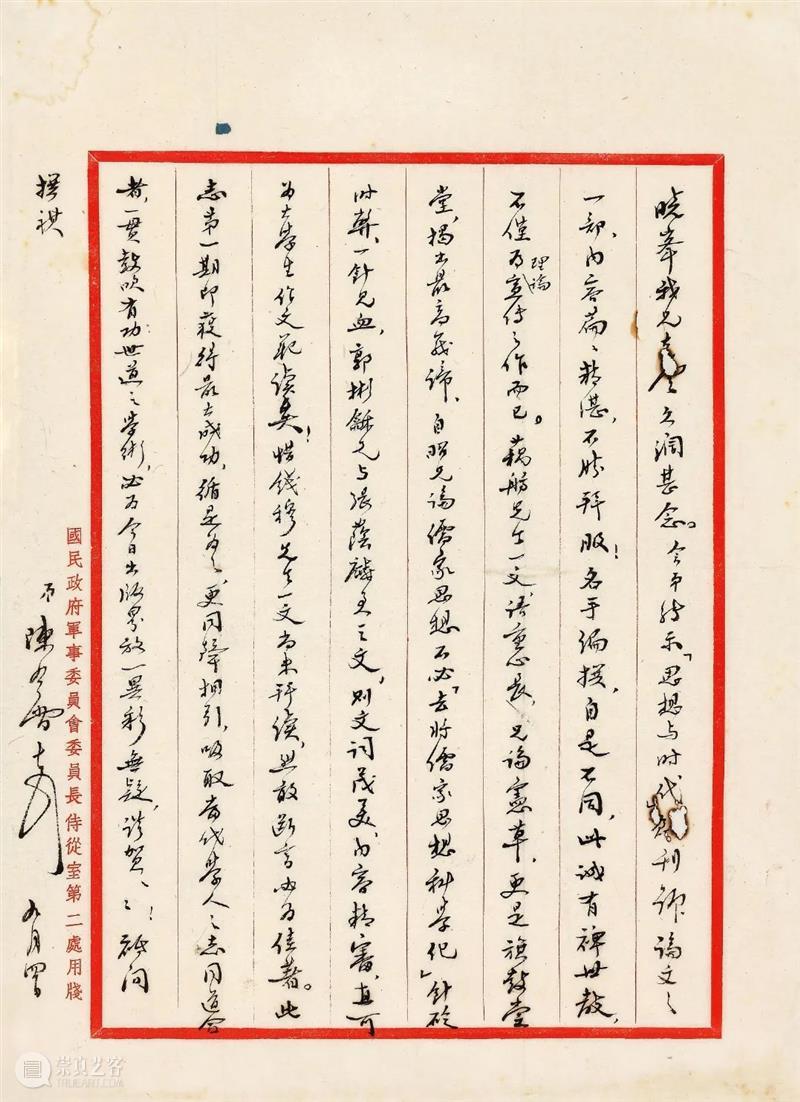 曉峯我兄久濶甚念。今承轉示「思想与时代」刊論文之
一部、内容篇、精湛、不勝拜服！名手編撰、自是不同、此誠有裨世教、
不僅为理論宣傳之作而已。藕舫先生一文、语重心長、兄論憲草、更是旗鼓堂
堂、揭出最高義諦、自昭兄論儒家思想不必「去將儒家思想科學化」針砭
时弊、一針見血、郭彬龢兄与張蔭麟兄之文、则文詞茂美、内容精審、直可
为大學生作文範讀矣！惜錢穆先生一文尚未拜讀、然敢斷言必为佳著。此
志第一期即獲得最大成功、循是为之、更同聲相引、吸取當代學人之志同道合
者、一貫鼓吹有功世道之學術、必为今日出版界放一異彩無疑、謹賀、、！祗问
撰祺
弟陳布雷 九月四日
國民政府軍事委員會委員長侍從室第二處用牋
崇真艺客
TRUEART.COM